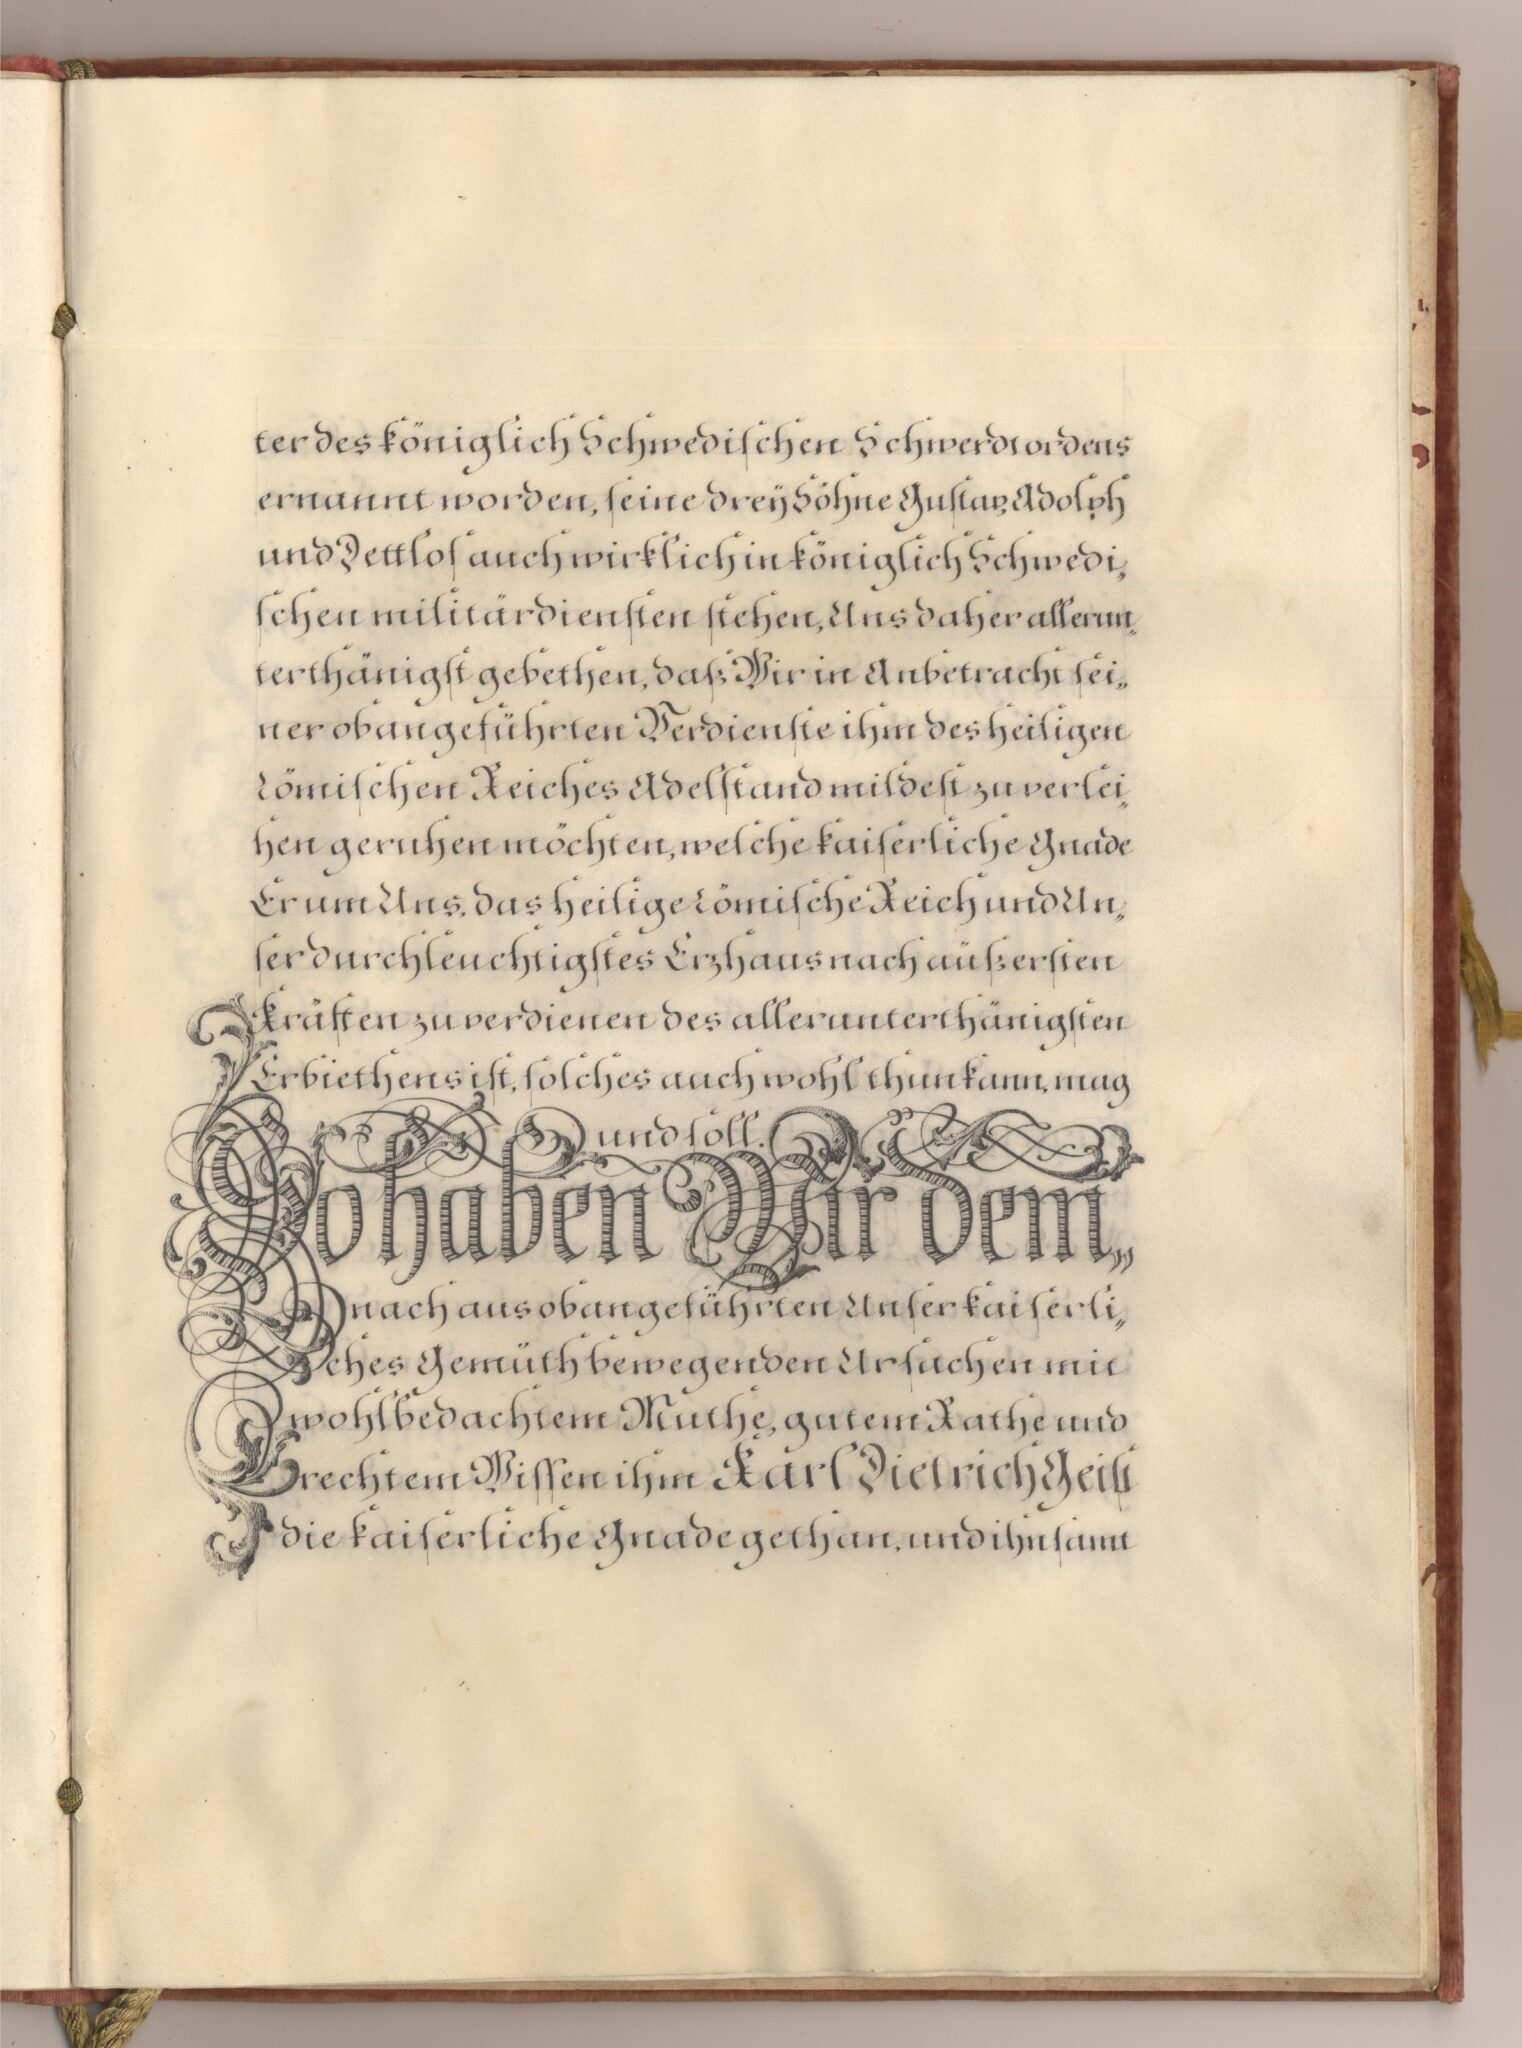 ter des königlich Schwedischen Schwerdtordens
ernannt worden, seine drey Söhne Gustav, Adolph
und Dettlof auch wirklich in königlich Schwedi„
schen militärdiensten stehen, Uns daher allerun„
terthänigst gebethen, daß Wir in Anbetracht sei„
ner obangeführten Verdienste ihm des heiligen
Römischen Reiches Adelstand mildest zu verlei„
hen geruhen möchten, welche kaiserliche Gnade
Er um Uns, das heilige Römische Reich und Un„
ser durchleuchtigstes Erzhaus nach äußersten
Kräften zu verdienen des allerunterthänigsten
Erbiethens ist, solches auch wohl thun kann, mag
und soll.
So haben Wir dem„
nach aus obangeführten Unser kaiserli„
ches Gemüth bewegenden Ursachen mit
wohlbedachtem Muthe, gutem Rathe und
rechtem Wissen ihm Karl Dietrich Geiß
die kaiserliche Gnade gethan, und ihn samt